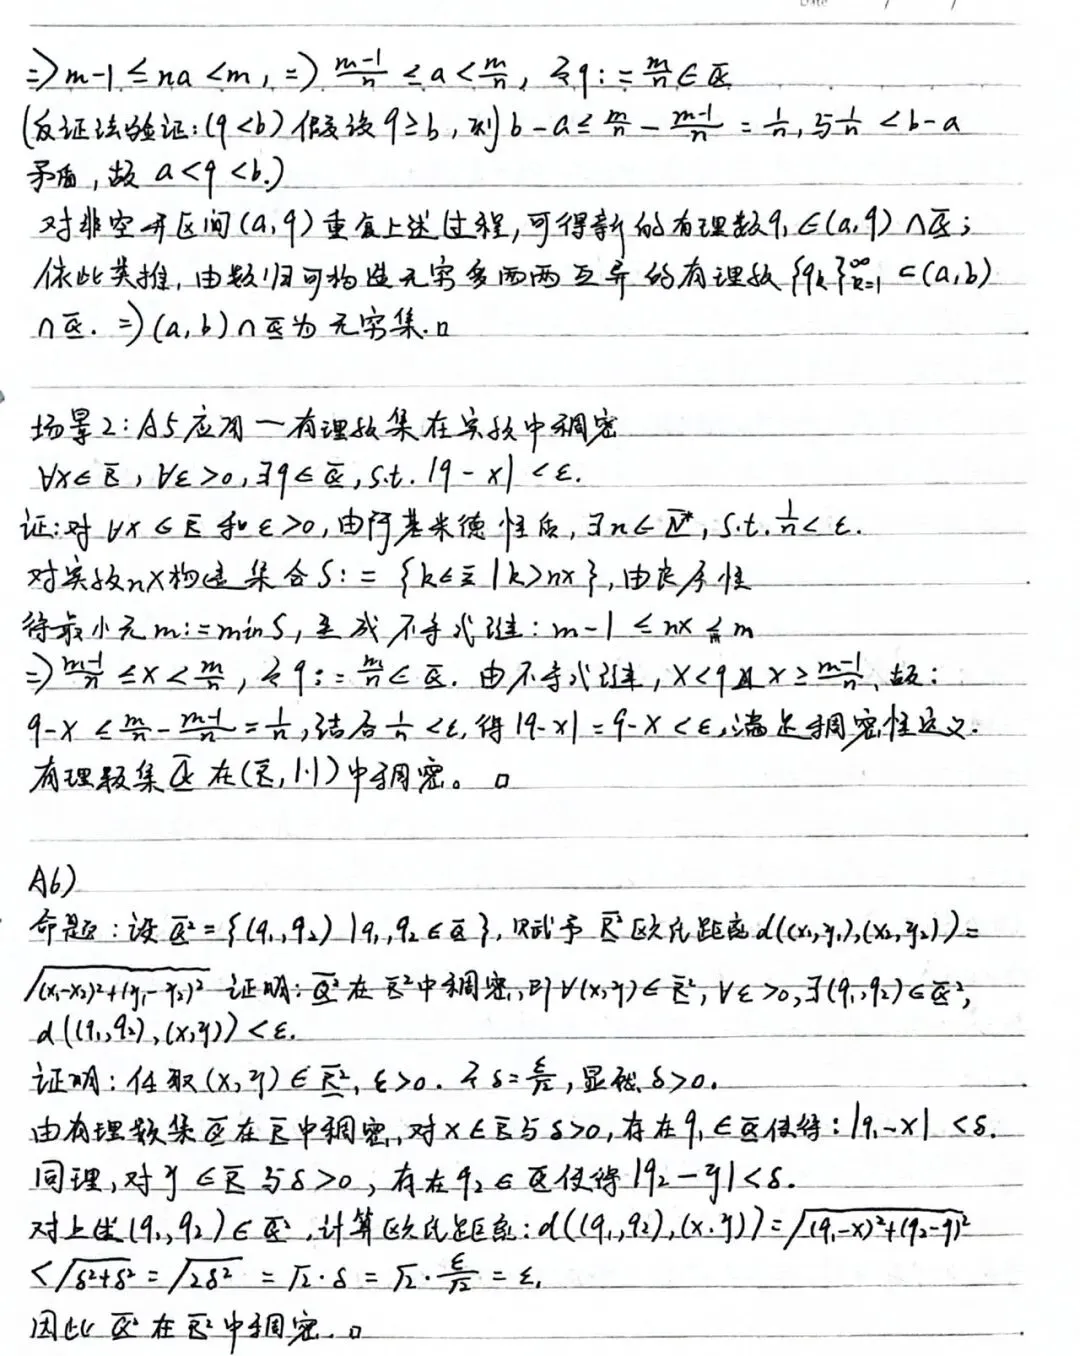 ⇒ m-1 ≤ na < m, ⇒ (m-1)/n ≤ a < m/n, 令q := m/n ∈ Q
(反证法验证:(q<b) 假设 q≥b, 则 b-a ≤ m/n - (m-1)/n = 1/n, 与 1/n < b-a
矛盾, 故 a<q<b.)
对非空开区间(a,q)重复上述过程,可得新的有理数q₁∈(a,q)∩Q;
依此类推,由数归可构造无穷多两两互异的有理数{qₖ}∞ₖ₌₁ ⊂(a,b)
∩Q. ⇒(a,b)∩Q为无穷集.□
场景2:A5应用一有理数集在实数中稠密
∀x∈R, ∀ε>0,∃q∈Q,s.t. |q-x|<ε.
证:对∀x∈R和ε>0,由阿基米德性质,∃n∈N*, s.t. 1/n<ε.
对实数nx构造集合S:={k∈Z|k>nx},由良序性
得最小元m:=minS,且成不等式链: m-1≤nx≤m
⇒(m-1)/n ≤x< m/n, 令q:= m/n ∈Q. 由不等式链, x<q且x≥(m-1)/n, 故:
q-x ≤ m/n - (m-1)/n = 1/n,结合 1/n <ε,得|q-x|=q-x<ε,满足稠密性定义.
有理数集Q在(R,|·|)中稠密。□
A6)
命题:设Q²={(q₁,q₂)|q₁,q₂∈Q},赋予R²欧氏距离d((x₁,y₁),(x₂,y₂))=
√((x₁-x₂)²+(y₁-y₂)²) 证明:Q²在R²中稠密,即∀(x,y)∈R²,∀ε>0,∃(q₁,q₂)∈Q²,
d((q₁,q₂),(x,y))<ε.
证明:任取(x,y)∈R², ε>0. 令δ=ε/√2,显然δ>0.
由有理数集Q在R中稠密,对x∈R与δ>0,存在q₁∈Q使得:|q₁-x|<δ.
同理,对y∈R与δ>0,存在q₂∈Q使得|q₂-y|<δ.
对上述(q₁,q₂)∈Q²,计算欧氏距离:d((q₁,q₂),(x,y))=√((q₁-x)²+(q₂-y)²)
<√(δ²+δ²) =√(2δ²) =√2·δ=√2·ε/√2=ε.
因此Q²在R²中稠密.□